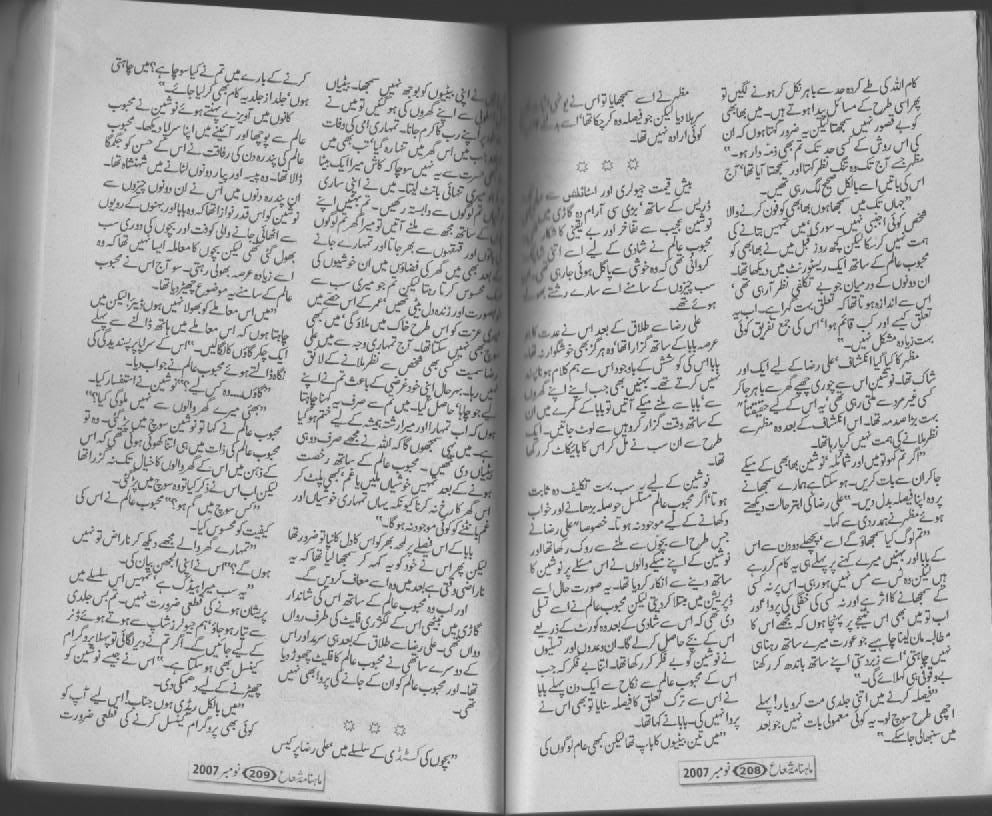 کام اللہ کی طے کردہ حد سے باہر نکل کر ہونے لگیں تو
پھر اسی طرح کے مسائل پیدا ہوتے ہیں۔ میں بھابھی
کو بے قصور نہیں سمجھتا لیکن یہ ضرور کہتا ہوں کہ ان
کی اس روش کے کسی حد تک تم بھی ذمہ دار ہو۔"
مظہر جسے آج تک وہ تنگ نظر کہتا اور سمجھتا آیا تھا' آج
اس کی باتیں اسے بالکل صحیح لگ رہی تھیں۔
"جہاں تک میں سمجھا ہوں بھابھی کو فون کرنے والا
شخص کوئی اجنبی نہیں۔ سوری میں تمہیں بتانے کی
ہمت نہیں کر سکا لیکن کچھ روز قبل میں نے بھابھی کو
محبوب عالم کے ساتھ ایک ریسٹورنٹ میں دیکھا تھا۔
ان دونوں کے درمیان جو بے تکلفی نظر آ رہی تھی'
اس سے اندازہ ہوتا تھا کہ تعلق بہت گہرا ہے۔ اب یہ
تعلق کیسے اور کب قائم ہوا' اس کی جمع تفریق کوئی
بہت زیادہ مشکل نہیں۔"
مظہر کا کیا گیا انکشاف' علی رضا کے لیے ایک اور
شاک تھا۔ نوشین اس سے چوری چھپے گھر سے باہر جا کر
کسی غیر مرد سے ملتی رہی تھی' یہ اس کے لیے حقیقتاً"
بہت بڑا صدمہ تھا۔ اس انکشاف کے بعد وہ مظہر سے
نظر ملانے کی ہمت نہیں کر پا رہا تھا۔
"اگر تم کہو تو میں اور شمائلہ' نوشین بھابھی کے میکے
جا کر ان سے بات کریں۔ ہو سکتا ہے ہمارے سمجھانے
پر وہ اپنا فیصلہ بدل دیں۔" علی رضا کی ابتر حالت دیکھتے
ہوئے مظہر نے ہمدردی سے کہا۔
"تم لوگ کیا سمجھاؤ گے اسے' پچھلے دو دن سے اس
کے بابا اور بہنیں میرے کہنے پر پہلے ہی یہ کام کر رہے
ہیں لیکن وہ کس سے مس نہیں ہو رہی۔ اس پر نہ کسی
کے سمجھانے کا اثر ہے اور نہ کسی کی خفگی کی پروا' اور
اب تو میں بھی اس نتیجے پر پہنچا ہوں کہ مجھے اس کا
مطالبہ مان لینا چاہیے جو عورت میرے ساتھ رہنا ہی
نہیں چاہتی' اسے زبردستی اپنے ساتھ باندھ کر رکھنا
بے وقوفی ہی کہلائے گی۔"
"فیصلہ کرنے میں اتنی جلدی مت کرو یار! پہلے
اچھی طرح سوچ لو۔ یہ کوئی معمولی بات نہیں جو بعد
میں سنبھالی جا سکے۔"
مظہر نے اسے سمجھایا تو اس نے
سر ہلا دیا لیکن جو فیصلہ وہ کر چکا تھا' اسے بدلنے کا
کوئی ارادہ نہیں تھا۔
☼ ☼ ☼
بیش قیمت جیولری اور اسٹائلش سے
ڈریس کے ساتھ' بڑی سی آرام دہ گاڑی میں
نوشین عجیب سے تفاخر اور بے یقینی کا شکار
محبوب عالم نے شادی کے لیے اسے اتنی
کروائی تھی کہ وہ خوشی سے پاگل ہوئی جا رہی تھی۔
سب چیزوں کے سامنے اسے سارے رشتے بھولے
ہوئے تھے۔
علی رضا سے طلاق کے بعد اس نے عدت کا جو
عرصہ بابا کے ساتھ گزارا تھا' وہ ہرگز بھی خوشگوار نہ تھا۔
بابا اس کی کوشش کے باوجود اس سے ہم کلام ہونا پسند
نہیں کرتے تھے۔ بہنیں بھی جب اپنے اپنے گھروں
سے بابا سے ملنے میکے آتیں تو بابا کے کمرے میں ان
کے ساتھ وقت گزار کر وہیں سے لوٹ جاتیں۔ ایک
طرح سے ان سب نے مل کر اس کا بائیکاٹ کر رکھا
تھا۔
نوشین کے لیے یہ سب بہت تکلیف دہ ثابت
ہوتا' اگر محبوب عالم مسلسل حوصلہ بڑھانے اور خواب
دکھانے کے لیے موجود نہ ہوتا۔ خصوصاً" علی رضا نے
جس طرح اسے بچوں سے ملنے سے روک رکھا تھا اور
نوشین کے اپنے میکے والوں نے اس مسئلے پر نوشین کا
ساتھ دینے سے انکار کر دیا تھا۔ یہ صورت حال اسے
ڈپریشن میں مبتلا کر دیتی لیکن محبوب عالم نے اسے تسلی
دی تھی کہ اس سے شادی کے بعد وہ کورٹ کے ذریعے
اس کے بچے حاصل کر لے گا۔ ان وعدوں اور تسلیوں
نے نوشین کو بے فکر کر رکھا تھا۔ اتنا بے فکر کہ جب
اس کے محبوب عالم سے نکاح سے ایک دن پہلے بابا
نے اس سے ترک تعلق کا فیصلہ سنایا تو بھی اس نے
پروا نہیں کی۔ بابا نے کہا تھا۔
"میں تین بیٹیوں کا باپ تھا لیکن کبھی عام لوگوں کی
ماہنامہ شعاع 208 نومبر 2007
نے اپنی بیٹیوں کو بوجھ نہیں سمجھا۔ بیٹیاں
سے اپنے گھروں کی ہو گئیں تو میں نے
پر اپنے رب کا کرم جانا۔ تمہاری امی کی وفات
جب میں اس گھر میں تنہا رہ گیا' تب بھی میں
حسرت سے یہ نہیں سوچا کہ کاش میرا ایک بیٹا
میری تنہائی بانٹ لیتا۔ میں نے اپنی ساری
تم لوگوں سے وابستہ رکھیں۔ تم بہنیں اپنے
کے ساتھ مجھ سے ملنے آتیں تو میرا گھر تم لوگوں
اور قہقہوں سے بھر جاتا اور تمہارے جانے
بعد بھی میں گھر کی فضاؤں میں ان خوشیوں کی
محسوس کرتا رہتا لیکن تم جو میری سب سے
خوبصورت اور زندہ دل بیٹی تھیں' عمر کے اس حصے میں
میری عزت کو اس طرح خاک میں ملاؤ گی' میں کبھی
سوچ بھی نہیں سکتا تھا۔ آج تمہاری وجہ سے میں علی
رضا سمیت کسی بھی شخص سے نظر ملانے کے لائق
نہیں رہا۔ بہرحال اپنی خود غرضی کے باعث تم نے اپنے
لیے جو چاہا' حاصل کیا۔ میں تم سے صرف یہ کہنا چاہتا
ہوں کہ اب تمہارا اور میرا رشتہ ہمیشہ کے لیے ختم ہو گیا
ہے۔ میں یہی سمجھوں گا کہ اللہ نے مجھے صرف دو ہی
بیٹیاں دی تھیں۔ محبوب عالم کے ساتھ رخصت
ہونے کے بعد تمہیں خوشیاں ملیں یا غم' کبھی پلٹ کر
اس گھر کا رخ نہ کرنا کیونکہ یہاں تمہاری خوشیاں اور
غم بانٹنے کو کوئی موجود نہ ہو گا۔"
بابا کے اس فیصلے پر لحہ بھر کو اس کا دل کانپا تو ضرور تھا
لیکن پھر اس نے خود کو یہ کہہ کر سمجھا لیا تھا کہ یہ
ناراضی وقتی ہے بعد میں وہ اسے معاف کر دیں گے۔
اور اب وہ محبوب عالم کے ساتھ اس کی شاندار
گاڑی میں بیٹھی اس کے لگژری فلیٹ کی طرف رواں
دواں تھی۔ علی رضا سے طلاق کے بعد ہی سعد اور اس
کے دوسرے ساتھی نے محبوب عالم کا فلیٹ چھوڑ دیا
تھا۔ اور محبوب عالم کو ان کے جانے کی پروا بھی نہیں
تھی۔
☼ ☼ ☼
"بچوں کی کسٹڈی کے سلسلے میں' علی رضا پر کیس
کرنے کے بارے میں تم نے کیا سوچا ہے؟ میں چاہتی
ہوں' جلد از جلد یہ کام بھی کر لیا جائے۔"
کانوں میں آویزے پہنتے ہوئے نوشین نے محبوب
عالم سے پوچھا اور آئینے میں اپنا سراپا دیکھا۔ محبوب
عالم کی پندرہ دن کی رفاقت نے اس کے حسن کو جگمگا
ڈالا تھا۔ وہ پیسہ اور پیار دونوں لٹانے میں شہنشاہ تھا۔
ان پندرہ دنوں میں اس نے ان دونوں چیزوں سے
نوشین کو اس قدر نوازا تھا کہ وہ بابا اور بہنوں کے رویوں
سے اٹھائی جانے والی کوفت اور بچوں کی دوری سب
بھول گئی تھی لیکن بچوں کا معاملہ ایسا نہیں تھا کہ وہ
اسے زیادہ عرصہ بھولی رہتی۔ سو آج اس نے محبوب
عالم کے سامنے یہ موضوع چھیڑ دیا تھا۔
"میں اس معاملے کو بھولا نہیں ہوں ڈیئر! لیکن میں
چاہتا ہوں کہ اس معاملے میں ہاتھ ڈالنے سے پہلے
ایک چکر گاؤں کا لگا لیں۔" اس کے سراپا پر پسندیدگی کی
نگاہ ڈالتے ہوئے محبوب عالم نے جواب دیا۔
"گاؤں۔۔۔ وہ کس لیے؟" نوشین نے استفسار کیا۔
"بھئی' میرے گھر والوں سے نہیں ملو گی کیا؟"
محبوب عالم نے کہا تو نوشین سوچ میں پڑ گئی۔ وہ تو
محبوب عالم کی ذات میں ہی اتنا کھوئی ہوئی تھی کہ اس
کے ذہن میں اس کے گھر والوں کا خیال تک نہ گزرا تھا
لیکن اب اس نے ذکر کیا تو وہ سوچ میں پڑ گئی۔
"کس سوچ میں گم ہو؟" محبوب عالم نے اس کی
کیفیت کو محسوس کیا۔
"تمہارے گھر والے مجھے دیکھ کر ناراض تو نہیں
ہوں گے؟" اس نے اپنی الجھن بیان کی۔
"یہ سب میرا ہیڈک ہے' تمہیں اس سلسلے میں
پریشان ہونے کی قطعی ضرورت نہیں۔ تم بس جلدی
سے تیار ہو جاؤ' ہم جیولرز شاپ سے ہوتے ہوئے ڈنر
کے لیے جائیں گے۔ اگر تم نے دیر لگائی تو پہلا پروگرام
کینسل بھی ہو سکتا ہے۔" اس نے جیسے نوشین کو
چھیڑنے کے لیے دھمکی دی۔
"میں بالکل ریڈی ہوں جناب! اس لیے آپ کو
کوئی بھی پروگرام کینسل کرنے کی قطعی ضرورت
ماہنامہ شعاع 209 نومبر 2007